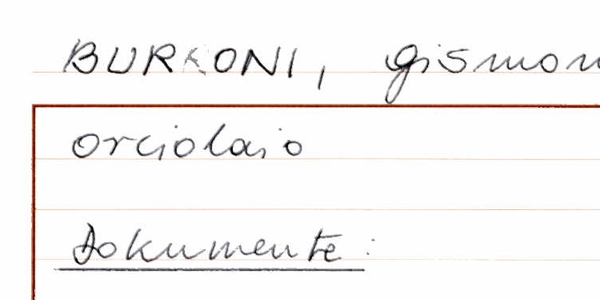 BURRONI, Gismon
orciolaio
Dokumente: